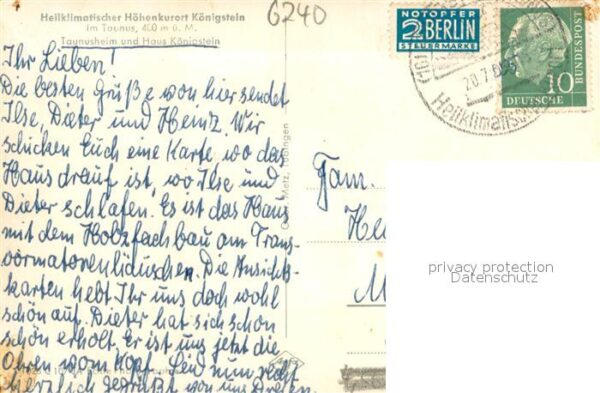 Heilklimatischer Höhenkurort Königstein
im Taunus, 400 m ü. M.
Taunusheim und Haus Königstein
6240
NOTOPFER
2 BERLIN
STEUERMARKE
DEUTSCHE BUNDESPOST
10
20.7.
Heilklimatisch
Ihr Lieben!
Die besten Grüße von hier sendet
Ilse, Dieter und Heinz. Wir
schicken Euch eine Karte, wo das
Haus drauf ist, wo Ilse und
Dieter schlafen. Es ist das Haus
mit dem Holzfachbau am Trans-
vormatorenhäuschen. Die Ansichts-
karten hebt Ihr uns doch wohl
schön auf. Dieter hat sich schon
schön erholt. Er ist uns jetzt die
Ohren vom Kopf. Seid nun recht
herzlich gegrüßt von uns Dreien.
Metz, Tübingen
Fam.
He
M
privacy protection
Datenschutz